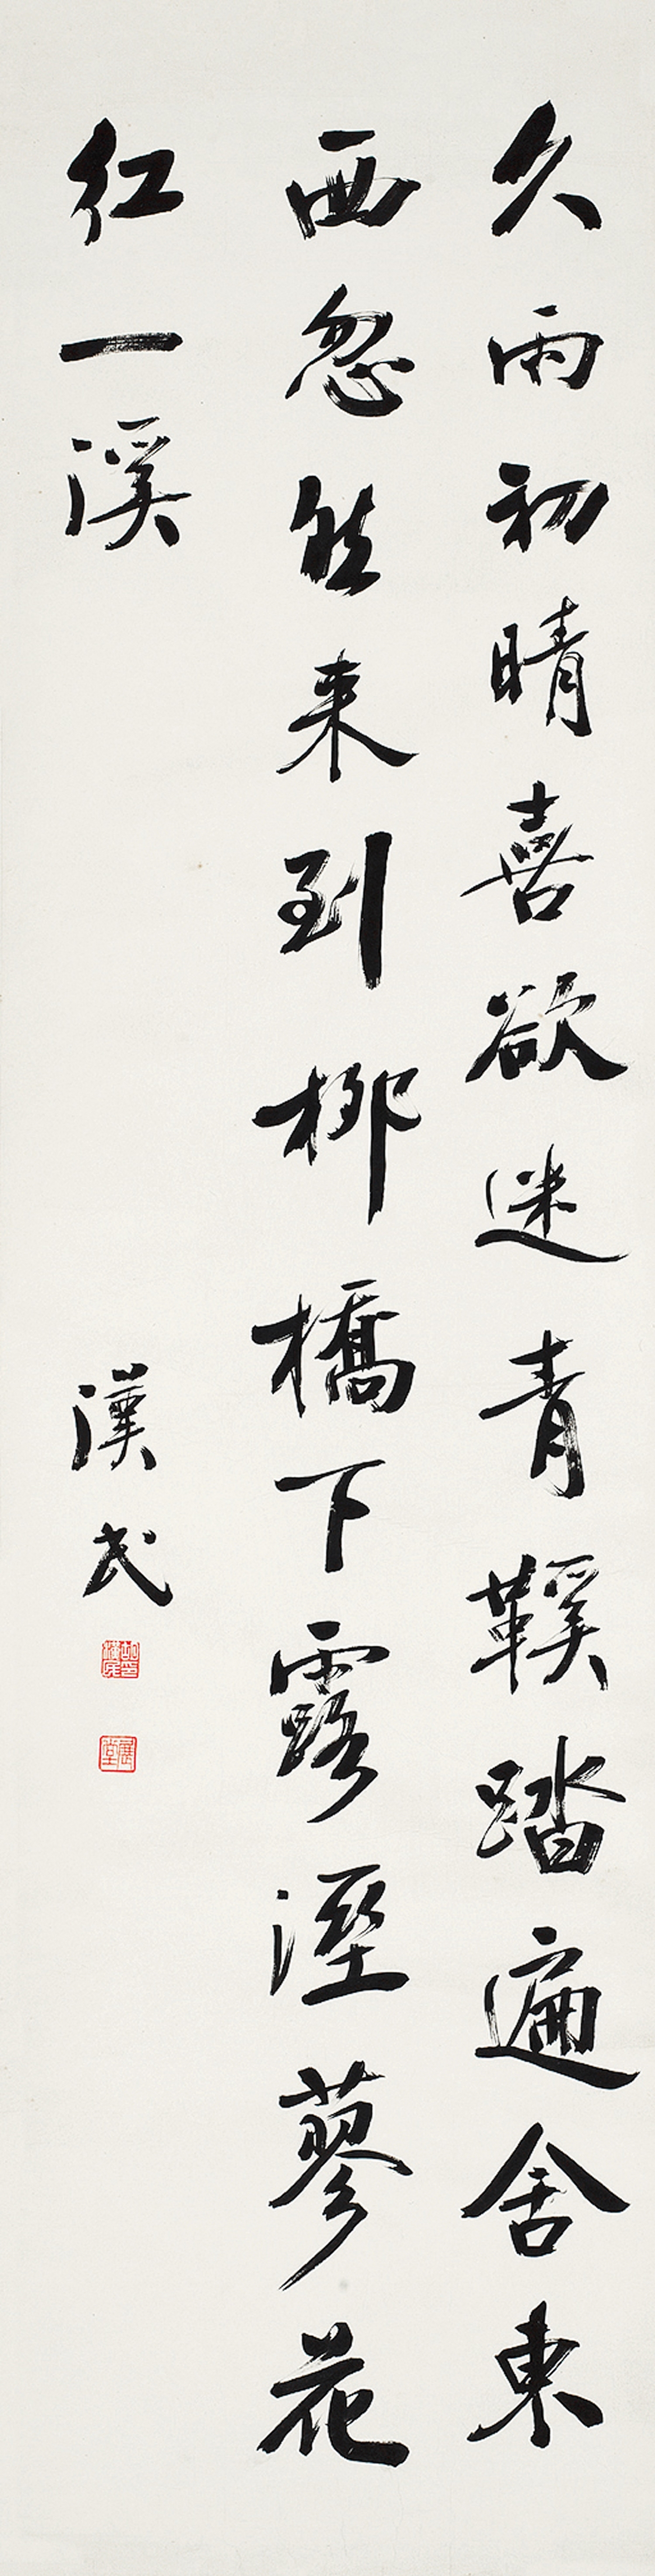 久雨初晴喜欲迷青鞵踏遍舍東
西忽然来到柳橋下露溼蓼花
紅一溪
漢民
胡漢民印
展堂